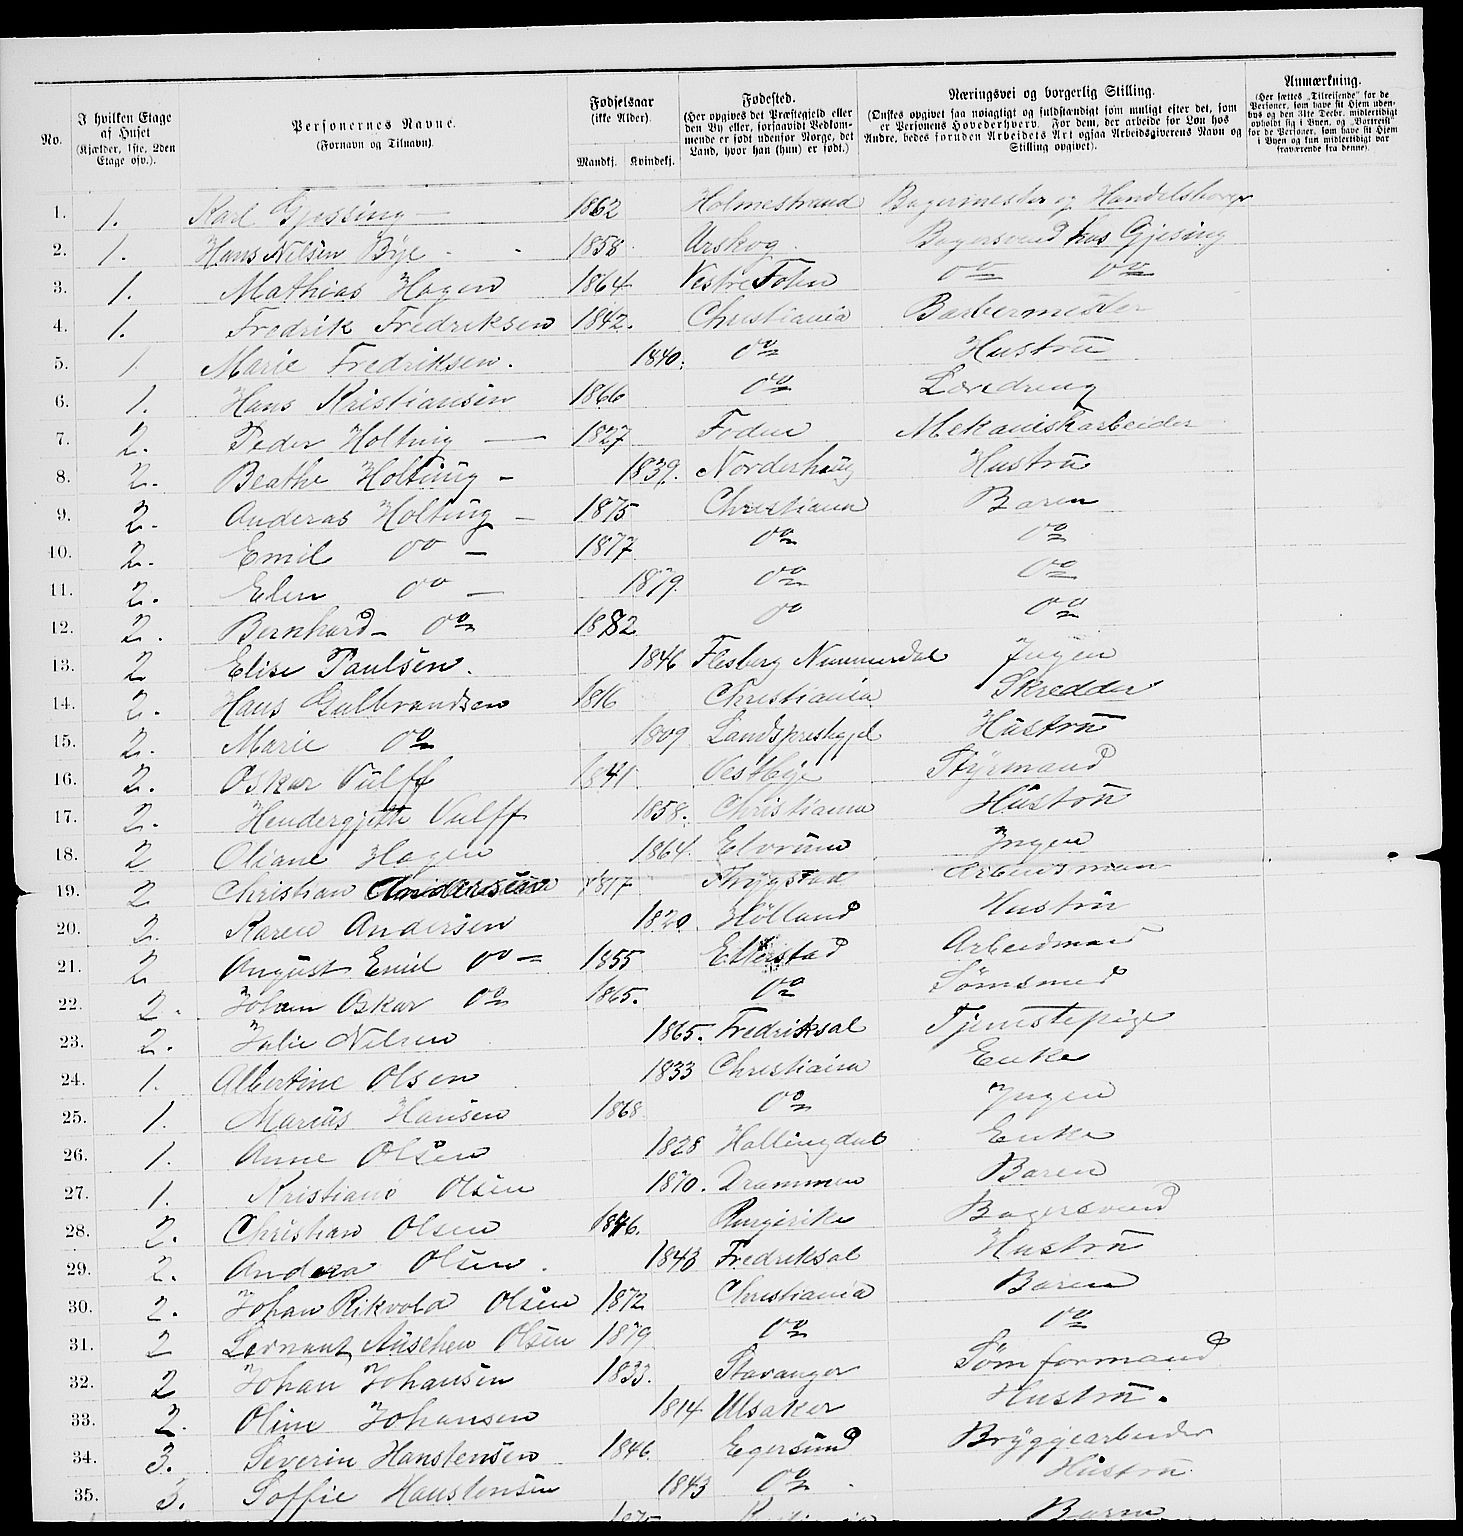 No.
I hvilken Etage af Huset (Kjælder, 1ste, 2den Etage osv.).
Personernes Navne. (Fornavn og Tilnavn).
Fødselsaar (ikke Alder). Mandkj. Kvindekj.
Fødested. (Her opgives det Præstegjeld eller den By eller, forsaavidt Vedkommende er født udenfor Norge, det Land, hvor han (hun) er født.)
Næringsvei og borgerlig Stilling. (Ønskes opgivet saa nøiagtigt og fuldstændigt som muligt efter det, som er Personens Hovederhverv. For dem, der arbeide for Løn hos Andre, bedes foruden Arbeidets Art ogsaa Arbeidsgiverens Navn og Stilling opgivet).
Anmærkning. (Her sættes „Tilreisende“ for de Personer, som have sit Hjem udenbys og den 31te Decbr. midlertidigt opholdt sig i Byen, og „Bortreist“ for de Personer, som have sit Hjem i Byen og kun midlertidigt var fraværende fra denne).
1. 1. Karl Gjessing 1862 Holmestrand Bagermester og Handelsborger
2. 1. Hans Nilsen Bye 1858 Urskog Bagersvend hos Gjesing
3. 1. Mathias Hagen 1864 Vestre Toten do do
4. 1. Fredrik Fredriksen 1842. Christiania Barbermester
5. 1 Marie Fredriksen. 1840. do Hustru
6. 1. Hans Kristiansen 1866 do Læredreng
7. 2. Peder Holting 1827 Mekaniskarbeider
8. 2. Beathe Holting 1839. Norderhoug Hustru
9. 2. Anderas Holting 1875 Christiania Baren
10. 2. Emil do 1877 do do
11. 2. Elen do 1879. do do
12. 2. Bernhard do 1882 do do
13. 2 Elise Paulsen. 1846 Flesberg Nummerdal Ingen
14. 2. Hans Gulbrandsen 1816 Christiania Skredder
15. 2. Marie do 1809 Hustru
16. 2. Oskar Vulff 1841 Vestbye Styrmand
17. 2. Hendergjette Vulff 1858. Christiania Hustru
18. 2 Oliane Hagen 1864. Elvrum Ingen
19. 2 Christian Andersen 1817 Trygstad Arbeidsman
20. 2. Karen Andersen 1820. Hølland Hustru
21. 2 August Emil do 1855 Etterstad Arbeidmand
22. 2. Johan Oskar do 1865. do Sømsmed
23. 2. Julie Nilsen 1865. Fredriksal Tjenstepige
24. 1. Albertine Olsen 1833 Christiania Enke
25. 1. Marius Hansen 1868 do Ingen
26. 1. Anne Olsen 1828 Hallingdal Enke
27. 1. Kristiane Olsen 1870. Drammen Baren
28. 2. Christian Olsen 1846. Ringerike Bagersvend
29. 2. Andrea Olsen. 1843 Fredriksal Hustru
30. 2. Johan Rikvold Olsen 1872 Christiania Baren
31. 2 Olsen 1879 do do
32. 2 Johan Johansen 1833. Stavanger Sømformand
33. 2. Oline Johansen 1814 Ulsaker Hustru.
34. 3. Severin Hanstensen 1846. Egersund Bryggearbeider
35. 3. Soffie Hanstensen 1843 do Hustru
1875 Barn